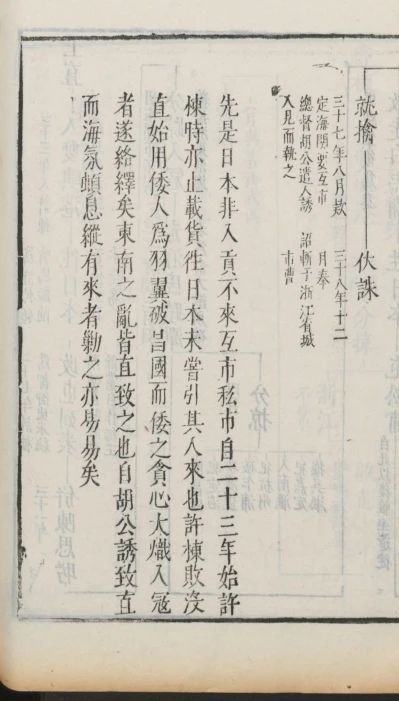 就擒——伏誅
三十七年八月款
定海關要互市
總督胡公遣人誘
入見而執之
三十八年十二
月奉
詔斬于浙江省城
市曹
先是日本非入貢不來互市私市自二十三年始許
棟時亦止載貨往日本未嘗引其人來也許棟敗没
直始用倭人為羽翼破昌國而倭之貪心大熾入寇
者遂絡繹矣東南之亂皆直致之也自胡公誘致直
而海氛頓息縱有來者勦之亦易易矣